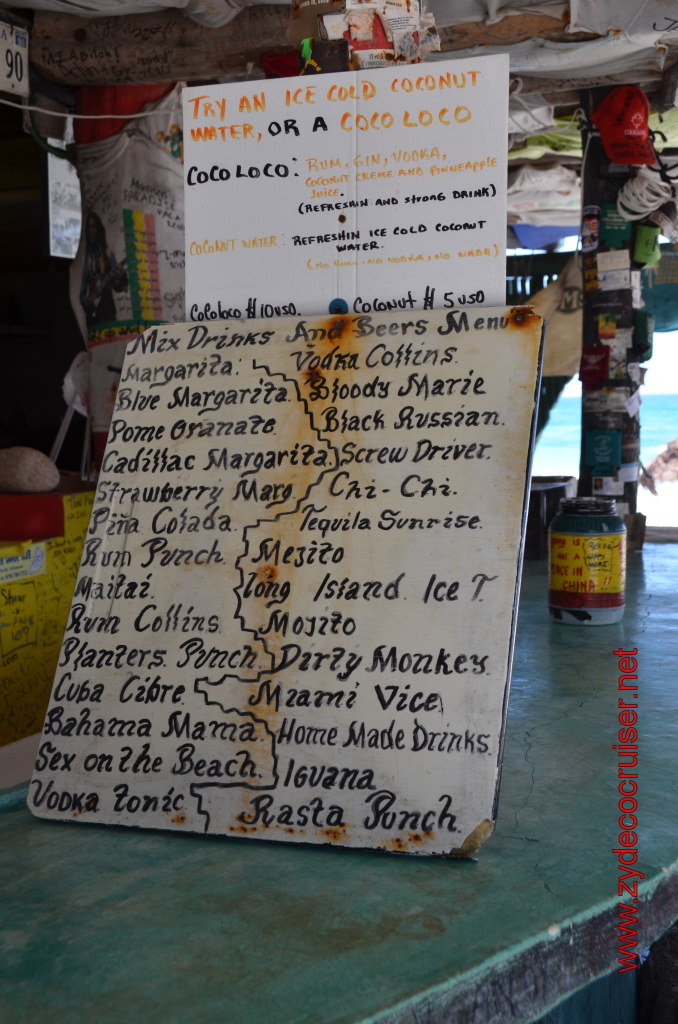 90
TRY AN ICE COLD COCONUT
WATER, OR A COCO LOCO
COCO LOCO: RUM, GIN, VODKA,
COCONUT CREME AND PINNEAPPLE
JUICE.
(REFRESHIN AND STRONG DRINK)
COCONUT WATER: REFRESHIN ICE COLD COCONUT
WATER.
COCOLOCO $10USD. COCONUT $5USD
Mix Drinks And Beers Menu
Margarita: Vodka Collins.
Blue Margarita. Bloody Marie
Pome Granate. Black Russian.
Cadillac Margarita. Screw Driver.
Strawberry Marg. Chi-Chi.
Piña Colada. Tequila Sunrise.
Rum Punch. Mezito
Maitai. Long Island Ice T.
Rum Collins Mojito
Planters Punch. Dirty Monkey.
Cuba Cibre. Miami Vice
Bahama Mama. Home Made Drinks.
Sex on the Beach. Iguana
Vodka Tonic. Rasta Punch.
IN
CHINA!!
www.zydecocruiser.net